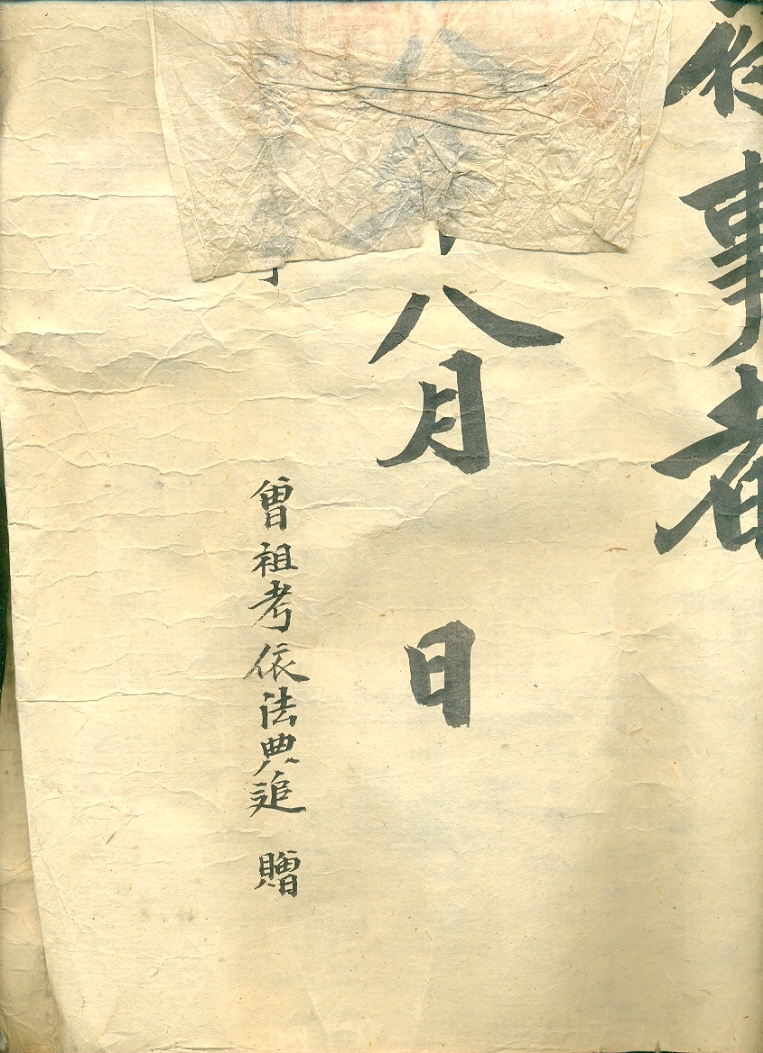 事者
八月 日
曾祖考依法典追 贈